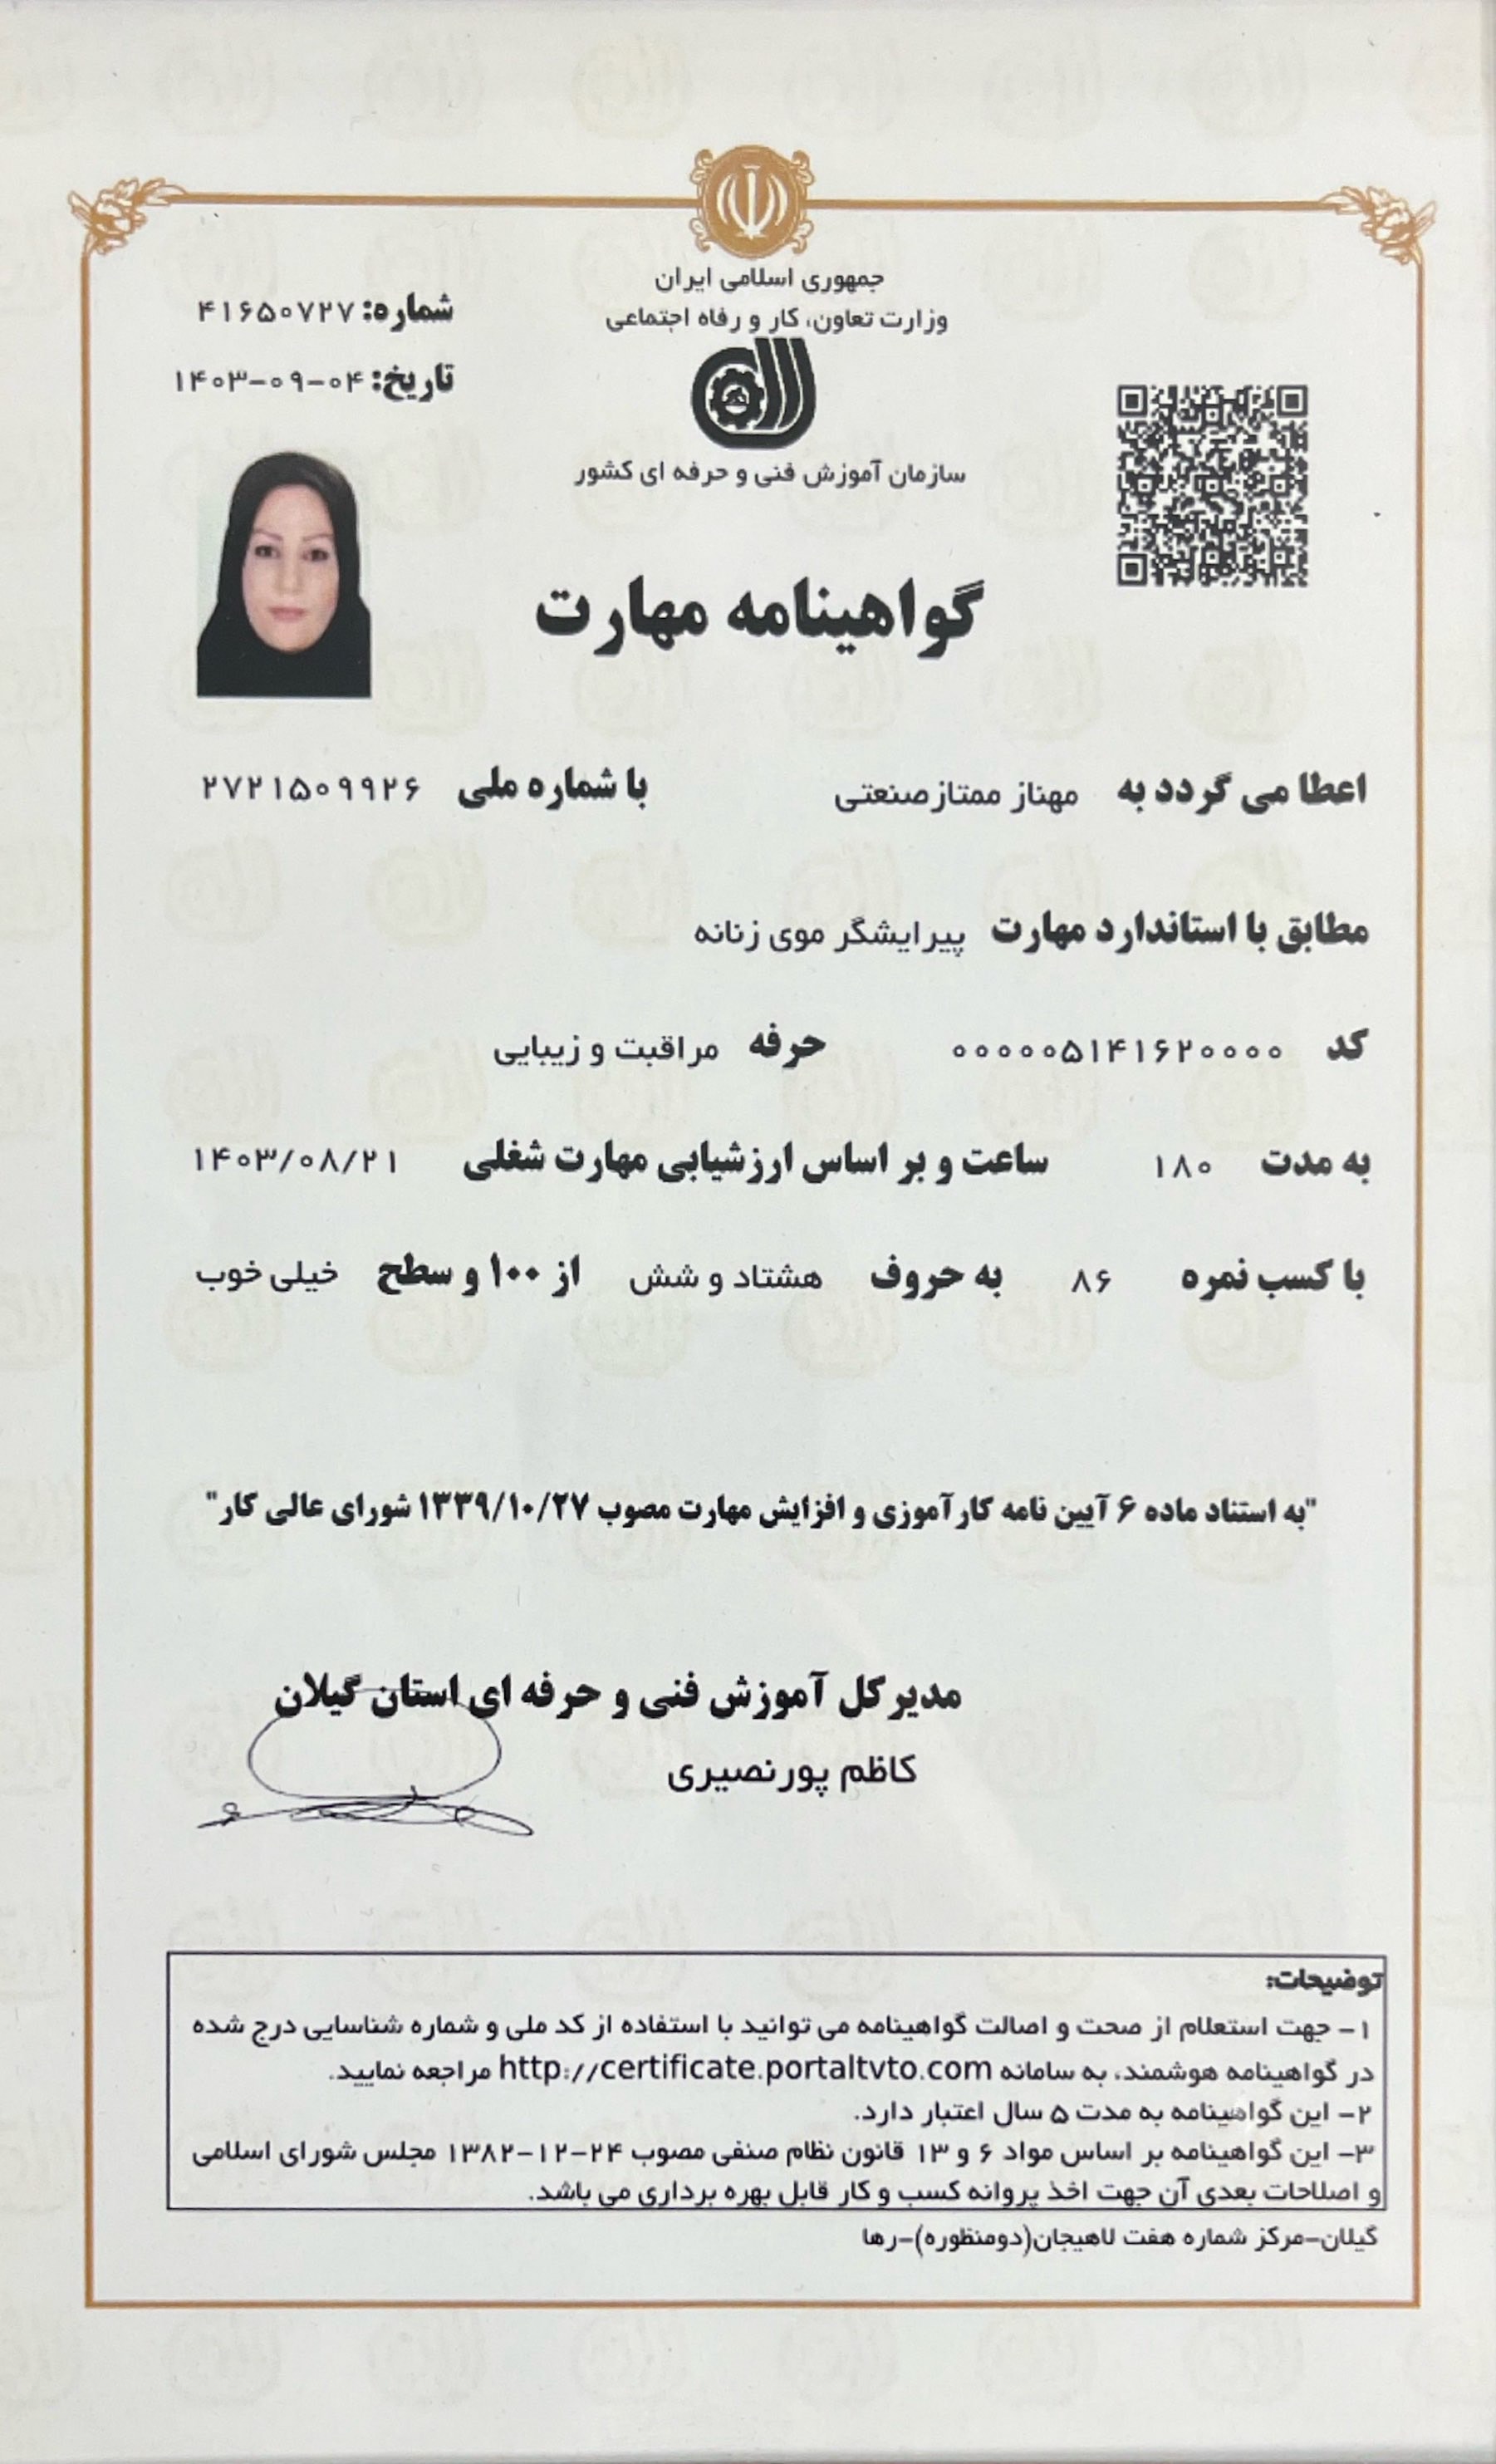 جمهوری اسلامی ایران
وزارت تعاون، کار و رفاه اجتماعی
سازمان آموزش فنی و حرفه ای کشور
شماره: ۴۱۶۵۰۷۲۷
تاریخ: ۱۴۰۳-۰۹-۰۴
گواهینامه مهارت
اعطا می گردد به مهناز ممتازصنعتی با شماره ملی ۲۷۲۱۵۰۹۹۲۶
مطابق با استاندارد مهارت پیرایشگر موی زنانه
کد ۰۰۰۰۰۵۱۴۱۶۲۰۰۰۰ حرفه مراقبت و زیبایی
به مدت ۱۸۰ ساعت و بر اساس ارزشیابی مهارت شغلی ۱۴۰۳/۰۸/۲۱
با کسب نمره ۸۶ به حروف هشتاد و شش از ۱۰۰ و سطح خیلی خوب
"به استناد ماده ۶ آیین نامه کارآموزی و افزایش مهارت مصوب ۱۳۳۹/۱۰/۲۷ شورای عالی کار"
مدیرکل آموزش فنی و حرفه ای استان گیلان
کاظم پورنصیری
توضیحات:
۱- جهت استعلام از صحت و اصالت گواهینامه می توانید با استفاده از کد ملی و شماره شناسایی درج شده
در گواهینامه هوشمند، به سامانه http://certificate.portaltvto.com مراجعه نمایید.
۲- این گواهینامه به مدت ۵ سال اعتبار دارد.
۳- این گواهینامه بر اساس مواد ۶ و ۱۳ قانون نظام صنفی مصوب ۲۴-۱۲-۱۳۸۲ مجلس شورای اسلامی
و اصلاحات بعدی آن جهت اخذ پروانه کسب و کار قابل بهره برداری می باشد.
گیلان-مرکز شماره هفت لاهیجان(دومنظوره)-رها